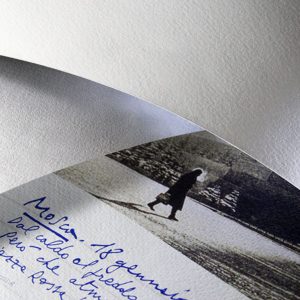 Mosca. 18 gennaio
Dal caldo al freddo
Però che atm
iazza Rossa